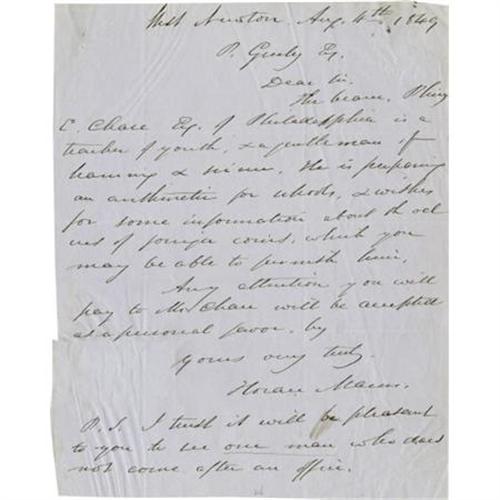 West Newton Aug. 4th 1849
P. Greely Esq.
Dear Sir.
The bearer, Pliny
E. Chase Esq. of Philadelphia is a
teacher of youth, & a gentleman of
learning & science. He is preparing
an arithmetic for schools, & wishes
for some information about the val
ues of foreign coins, which you
may be able to furnish him.
Any attention you will
pay to Mr. Chase will be accepted
as a personal favor, by
Yours very truly.
Horace Mann.
P.S. I trust it will be pleasant
to you to see one man who does
not come after an office.